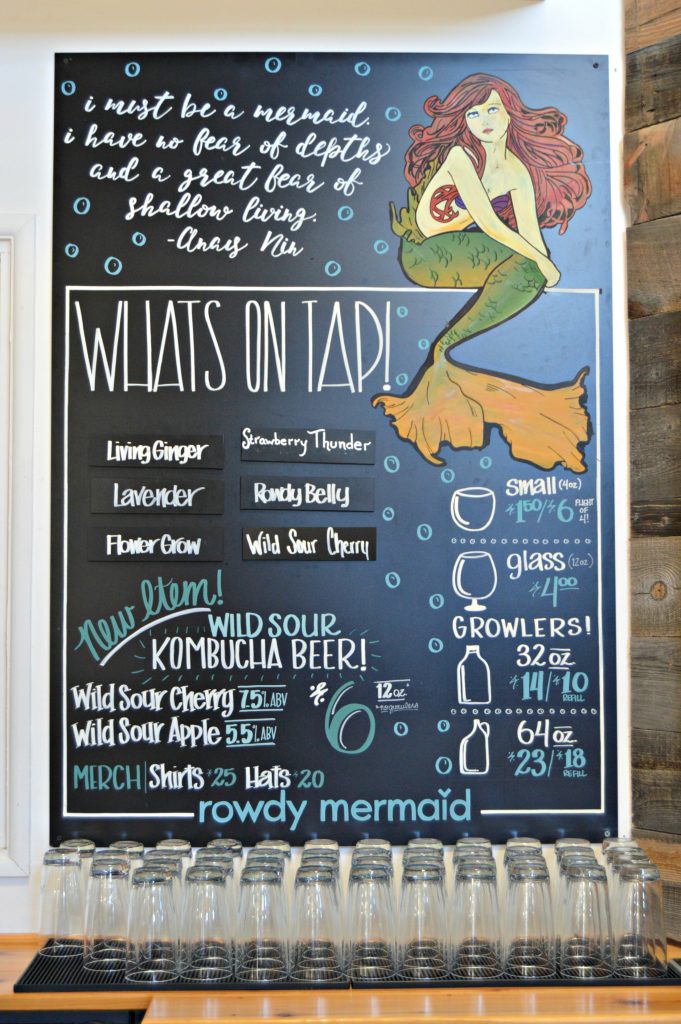 i must be a mermaid.
i have no fear of depths
and a great fear of
shallow living.
-Anais Nin
WHATS ON TAP!
Living Ginger
Strawberry Thunder
Lavender
Rowdy Belly
Flower Grow
Wild Sour Cherry
small (4oz)
$1.50/$6 FLIGHT OF 4!
glass (12oz)
$4.00
GROWLERS!
32 oz
$14/$10 REFILL
64 oz
$23/$18 REFILL
New Item!
WILD SOUR
KOMBUCHA BEER!
Wild Sour Cherry 7.5% ABV
Wild Sour Apple 5.5% ABV
$6 12oz
*no growlers
MERCH | Shirts $25 Hats $20
rowdy mermaid